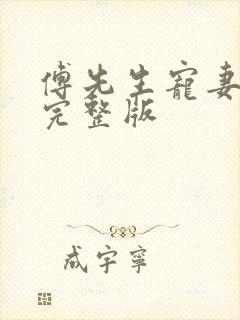 傅先生宠妻
完整版
成宇宁